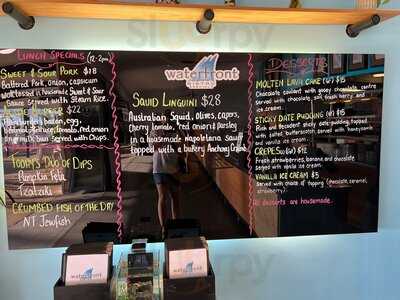 LUNCH SPECIALS (12-2pm)
SWEET & SOUR PORK $18
Battered Pork, onion, capsicum
tossed in housemade Sweet & Sour
Sauce served with Steam Rice.
$22
bacon, egg,
tomato, red onion
bun served with Chips.
TODAY'S DUO OF DIPS
Pumpkin Feta
Tzatziki
CRUMBED FISH OF THE DAY
NT Jewfish
waterfront
SQUID LINGUINI $28
Australian Squid, olives, capers,
Cherry tomato, red onion & parsley
in a housemade napoletana sauce
topped with a
DESSERTS
MOLTEN LAVA CAKE $15
Chocolate coulant with gooey chocolate centre
served with chocolate soil, fresh berry and
ice cream.
STICKY DATE PUDDING $15
Rich and decadent sticky date pudding topped
with butterscotch, served with honeycomb
and vanilla ice cream.
CREPES $12
Fresh strawberries, banana and chocolate
served with vanilla ice cream.
VANILLA ICE CREAM $5
Served with choice of topping (chocolate, caramel,
strawberry).
All desserts are housemade.
waterfront
waterfront